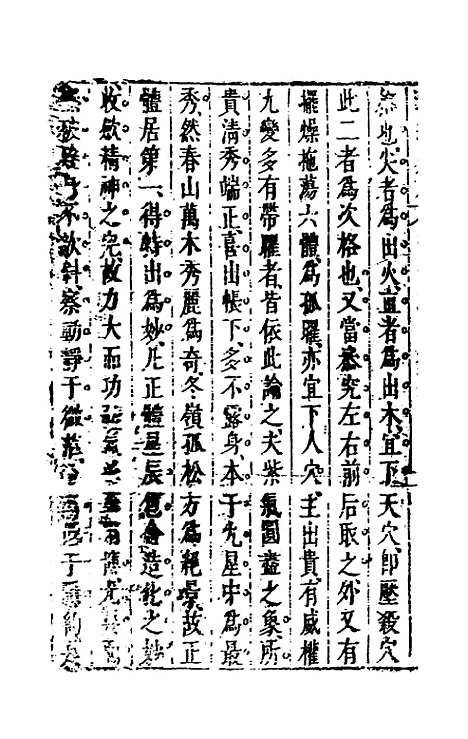 也尖者為出火直者為出木宜下天穴即壓殺穴
此二者為次格也又當叅究左右前后取之外又有
擺燥拖蕩六體為孤曜亦宜下人穴主出貴有威權
九變多有帶曜者皆依此論之夫紫氣圖蓋之象所
貴清秀端正喜山帳下多不露身本于九星中為最
秀然春山萬木秀麗為奇冬嶺孤松方為絕景故正
體居第一得特出為妙凡正體星辰造化之妙
收斂精神之完故力大而功
不欹斜察動靜于微茫